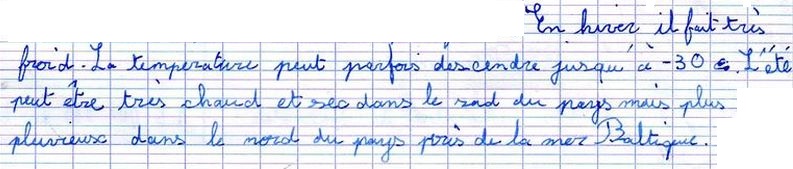 En hiver il fait très
froid. La température peut parfois descendre jusqu'à -30 c. L'été
peut être très chaud et sec dans le sud du pays mais plus
pluvieux dans le nord du pays près de la mer Baltique.